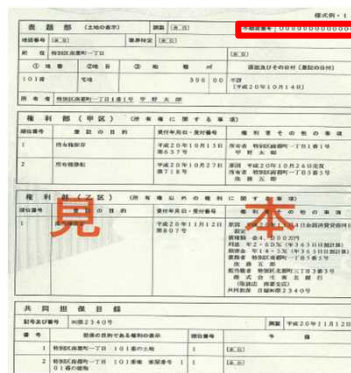 様式例・1
表題部 (土地の表示) 調製 余白 不動産番号 0000000000000
地図番号 余白 筆界特定 余白
所在 特別区南都町一丁目 余白
①地番 ②地目 ③地積 ㎡ 原因及びその日付〔登記の日付〕
101番 宅地 300 00 不詳
〔平成20年10月14日〕
所有者 特別区南都町一丁目1番1号 甲野太郎
権利部(甲区) (所有権に関する事項)
順位番号 登記の目的 受付年月日・受付番号 権利者その他の事項
1 所有権保存 平成20年10月15日 所有者 特別区南都町一丁目1番1号
第637号 甲野太郎
2 所有権移転 平成20年10月27日 原因 平成20年10月26日売買
第718号 所有者 特別区南都町一丁目5番5号
法務五郎
権利部(乙区) (所有権以外の権利に関する事項)
順位番号 登記の目的 受付年月日・受付番号 権利者その他の事項
平成20年11月12日
第807号
債権額 金4,000万円
利息 年2・60%(年365日日割計算)
損害金 年14・5%(年365日日割計算)
債務者 特別区南都町一丁目5番5号
法務五郎
抵当権者 特別区北都町三丁目3番3号
株式会社南北銀行
(取扱店 南都支店)
共同担保 目録(あ)第2340号
見本
共同担保目録
記号及び番号 (あ)第2340号 調製 平成20年11月12日
番号 担保の目的である権利の表示 順位番号 予備
1 特別区南都町一丁目 101番の土地 1 余白
2 特別区南都町一丁目 101番地 家屋番号 1 1 余白
01番の建物